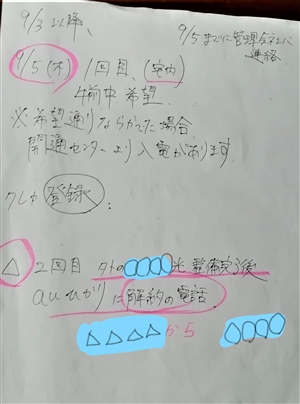 9/3 以降、
9/5 までに管理会社に
連絡
9/5 (木) 1回目、(宅内)
午前中希望
※希望通りならなかった場合、
開通センターより入電があります
クレカ 登録
△ 2回目 外の○○○○光 整備完了後
auひかりに解約の電話
△△△△から ○○○○